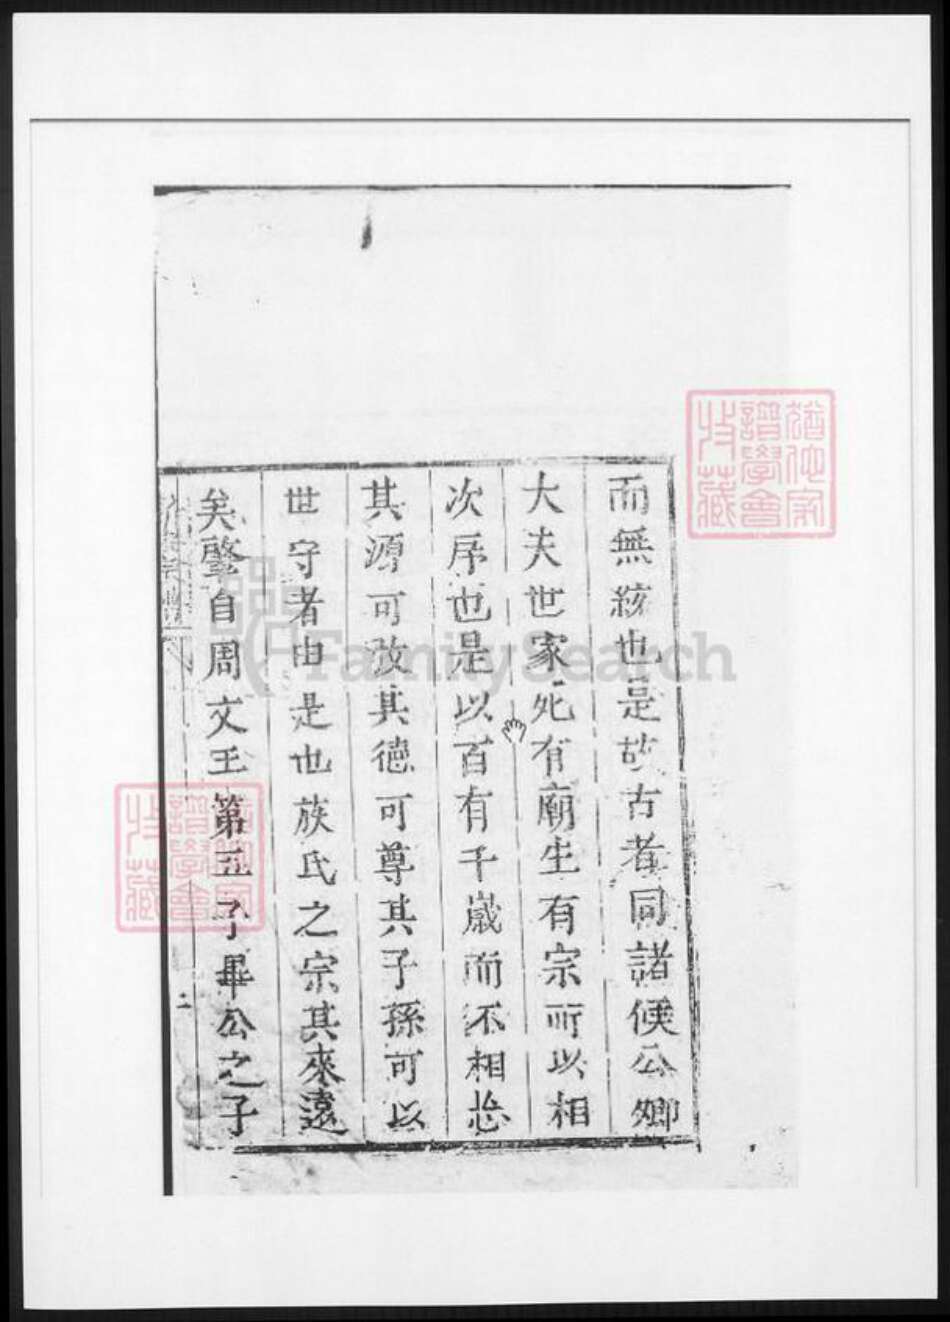 而無紊也是故古者同諸候公卿
大夫世家死有廟生有宗所以相
次序也是以百有千歲而不相忘
其源可改其德可尊其子孫可以
世守者由是也族氏之宗其來遠
矣肇自周文王第五子畢公之子
二
FamilySearch
譜學會
收藏
譜學會
收藏